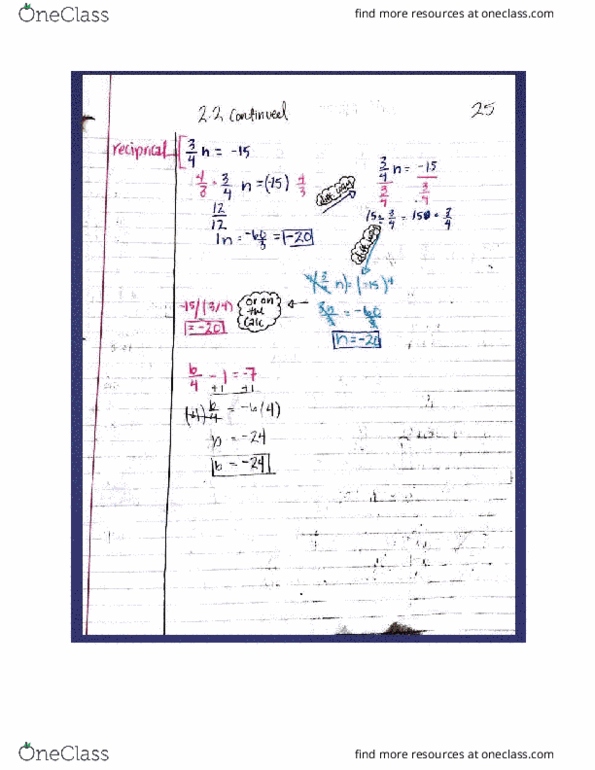 OneClass
find more resources at oneclass.com
2.2 Continued
25
reciprical
3/4 n = -15
4/3 · 3/4 n = (-15) 4/3
12/12
1n = -60/3 = -20
3/4 n = -15
3/4 3/4
(3/4 n) = (-15) 4
3n = -60
n = -20
or on the calc
-15/(3/4)
= -20
b/4 - 1 = -7
+1 +1
(4) b/4 = -6(4)
b = -24
b = -24
OneClass
find more resources at oneclass.com